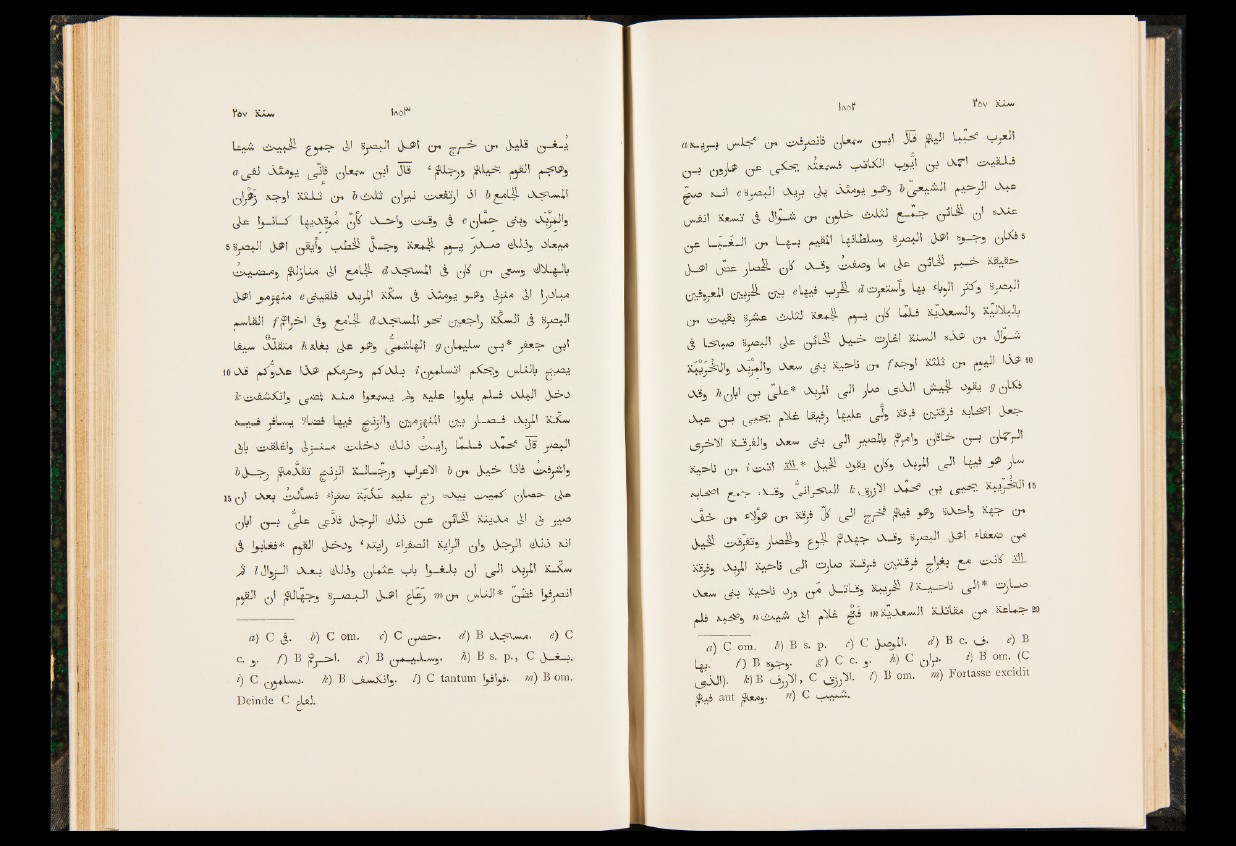 سنة ٢٥٧ ١٨٥٢
العرب تحبّبا اليهم قال ابن سمعان فانصرفت من مجلس بريه a
فلقيت احمد بن ايّوب الكاتب فسمعتُه يحكى عن هارون بن
عبد الرحيم الشيعىّ b وهو يومئذ يلى بريد البصرة c انه صحّ
عنده ان الخائن جمّع لثلث خلون من شوّال فى تسعة انفس
فكان وجوه اهل البصرة وسلطانها المقيم بها من الغَبَا عن 5
حقيقة خبر الخائن على ما وصفتُ وقد كان الحصار عضّ اهل
البصرة وكثر الوباء بها واستعرت d الحرب فيها e بين الحزبين المعروفين
بالبلاليّة والسعديّة فلمّا كان يوم الجمعة لثلث عشرة بقيت من
شوّال من هذه السنة اغارت خيل الخائن على البصرة صباحا فى
هذا اليوم من ثلثة اوجه f من ناحية بنى سعد والمِرْبَد والخُرَيْبَة 10
فكان g يقود الجيش الذى صار الى المربد *علىّ بن ابان h وقد
جعل اصحابه فرقتين فرقة ولّى عليها رفيقا غلام يحيى بن عبد
الرحمان بن خاقان وامرهم بالمصير الى بنى سعد والفرقة الاخرى
سار هو فيها الى المربد وكان يقود الخيل *التى اتت i من ناحية
الخُرَيْبَة يحيى بن محمّد الازرق k البحرانىّ وقد جمع اصحابه 15
من جهة واحدة وهو فيهم فخرج الى كلّ فرقة من هؤلاء من خفّ
من ضعفاء اهل البصرة وقد جهدهم الجوع والحصار وتفرّقت الخيل
التى كانت مع بغراج فرقتين فرقة صارت الى ناحية المربد وفرقة
صارت *الى ناحية l الخريبة وقاتل من ورد ناحية بنى سعد
جماعة من مقاتلة السعديّة m فَتْح غلام ابى شيث n وصحبه فلم 20
a) C om. b) B s. p. c) C الموصل. d) B c. ف. e) B
بها. f) B وجوه. g) C c. و. h) C دران. i) B om. (C
الذى). k) B الازرف, C الازرى. l) B om. m) Fortasse excidit
فيهم ant ومعهم. n) C شبيب.
سنة ٢٥٧ ١٨٥٣
يُغْنِ قليل من خرج من اهل البصرة الى جموع الخبيث شيئا
وهاجم القوم بخيلهم ورجلهم، قال ابن سمعان فانّى يومئذ لفى a
المسجد الجامع b اذ ارتفعت نيران ثلث b من ثلثة اوجه زَهْران
والمِرْبَد وبنى حمّان c فى وقت واحد كأنّ مُوقِديها كانوا على
ميعاد وذلك صدرَ يوم الجمعة وجلّ الخطب وأيقن اهل البصرة 5
بالهلاك وسعى من كان فى المسجد d الجامع الى منازلهم ومضيتُ
مبادرا الى منزلى وهو يومئذ فى سكّة المربد فلقينى e منهزمو اهل
البصرة فى السكّة راجعين نحو المسجد d الجامع وفى اخراهم f القاسم
ابن جعفر *بن سليمان g الهاشمىّ وهو على بغل h متقلّدا سيفا
يصيح بالناس ويحكم اتسلمون i بلدكم وحرمكم هذا عدوّكم قد 10
دخل البلد فلم يلووا عليه ولم يسمعوا منه فمضى وانكشفت k
سكّة المربد فصار بين المنهزمين والزنج فيها فضاء يسافر فيه
البصر قال محمّد فلمّا رايتُ ذلك دخلت منزلى واغلقت بابى
واشرفتُ فاذا خيل من b الاعراب ورجّالة الزنج تقدّمهم رجل b
على حصان كميت بيده رمح عليه عَذَبَة صفراء فسألتُ بعد ان 15
صير بى الى مدينة الخائن عن ذلك الرجل فادّعى علىّ بن ابان
انه ذلك الرجل وان الراية الصفراء رايته، ودخل القوم *فغابوا فى
سكّة المربد الى ان بلغوا باب عثمان وذلك بعد الزوال l ثم
انصرفوا فظنّ *الناس من m رَعَاع اهل البصرة وجهّالهم ان القوم
a) C فى. b) C om. c) C حصن. d) B مساجد. e) C
c. و. f) B احرهم. g) B وسليمن. h) B s. p., C بغل.
i) C بسلمون. k) B وانكسف. l) C tantum فوافوا. m) B om.
Deinde C لغاع.